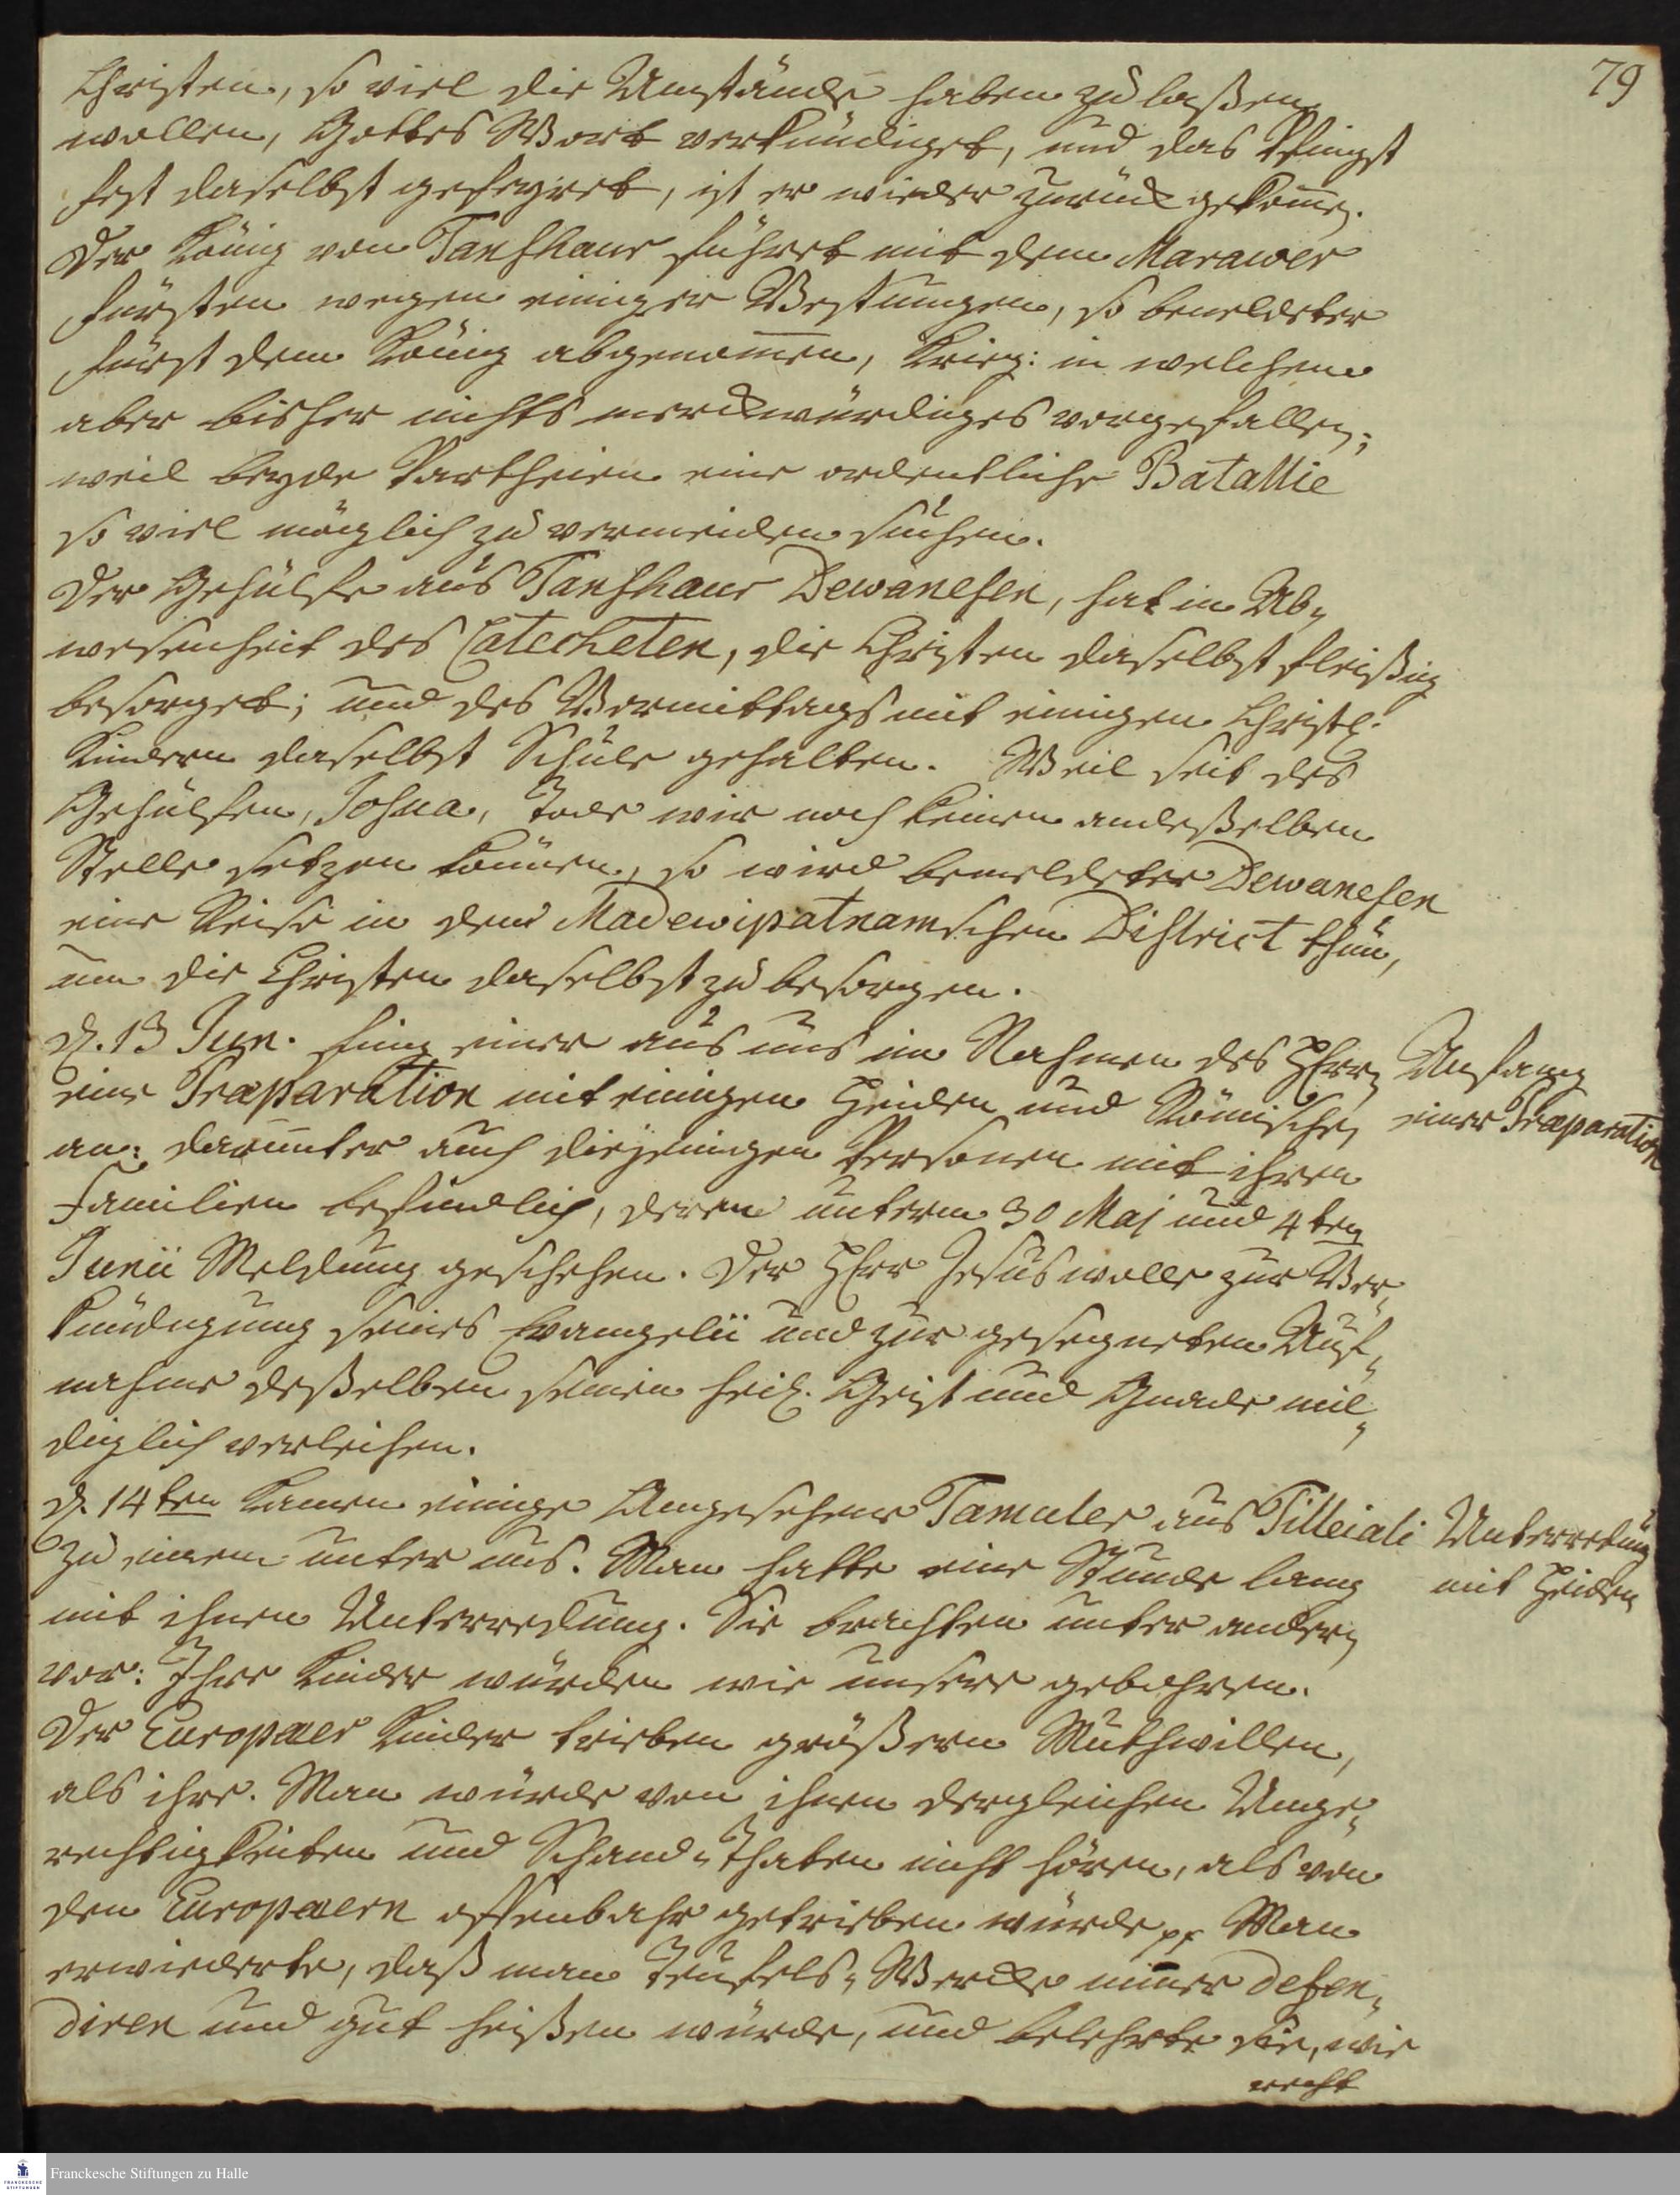 79
Christen, so viel die Umstände haben zu laßen
wollen, Gottes Wort verkündiget, und das Pfingst
fest daselbst gefeyret, ist er wieder zurück gekom̄en.
Der König von Tanshaur führet mit dem Marawer
fürsten wegen einiger Vestungen, so bemeldeter
fürst dem König abgenom̄en, Krieg: in welchem
aber bisher nichts merckwürdiges vorgefallen;
weil beyde Partheien eine ordentliche Batallie
so viel möglich zu vermeiden suchen.
Der Gehülfe aus Tanshaur Dewanesen, hat in Ab„
wesenheit des Catecheten, die Christen daselbst fleißig
besorget; und des Vormittags mit einigen Christl.
Kindern daselbst Schule gehalten. Weil seit des
Gehülfen, Josua, Tode wir noch keinen an deßelben
Stelle setzen können, so wird bemeldeter Dewanesen
eine Reise in den Madewipatnamschen District thun,
um die Christen daselbst zu besorgen.
d. 13 Jun. fing einer aus uns im Nahmen des HErrn
eine Præparation mit einigen Heiden und Römischen
an: darunter auch diejenigen Personen mit ihren
Familien befindlich, deren unterm 30 Maj und 4ten
Junii Meldung geschehen. Der HErr Jesus wolle zur Ver„
kündigung seines Evangelii und zur gesegneten Auf„
nahme deßelben seinen heil. Geist und Gnade mil„
diglich verleihen.
Anfang
einer Præparation
d. 14ten kamen einige Angesehene Tamuler aus Tilleiali
zu einem unter uns. Man hatte eine Stunde lang
mit ihnen Unterredung. Sie brachten unter andern
vor: Ihre Kinder würden wie unsere gebohren.
Der Europæer Kinder trieben größern Muthwillen,
als ihre. Man würde von ihnen dergleichen Unge„
rechtigkeiten und Schand„Thaten nicht hören, als von
den Europæern offenbahr getrieben würde pp Man
erwiederte, daß man Teufels„Wercke nimmer defen„
diren und gut heißen würde, und belehrte sie, wie
recht
Unterredung
mit Heiden
Franckesche Stiftungen zu Halle
FRANCKESCHE
STIFTUNGEN